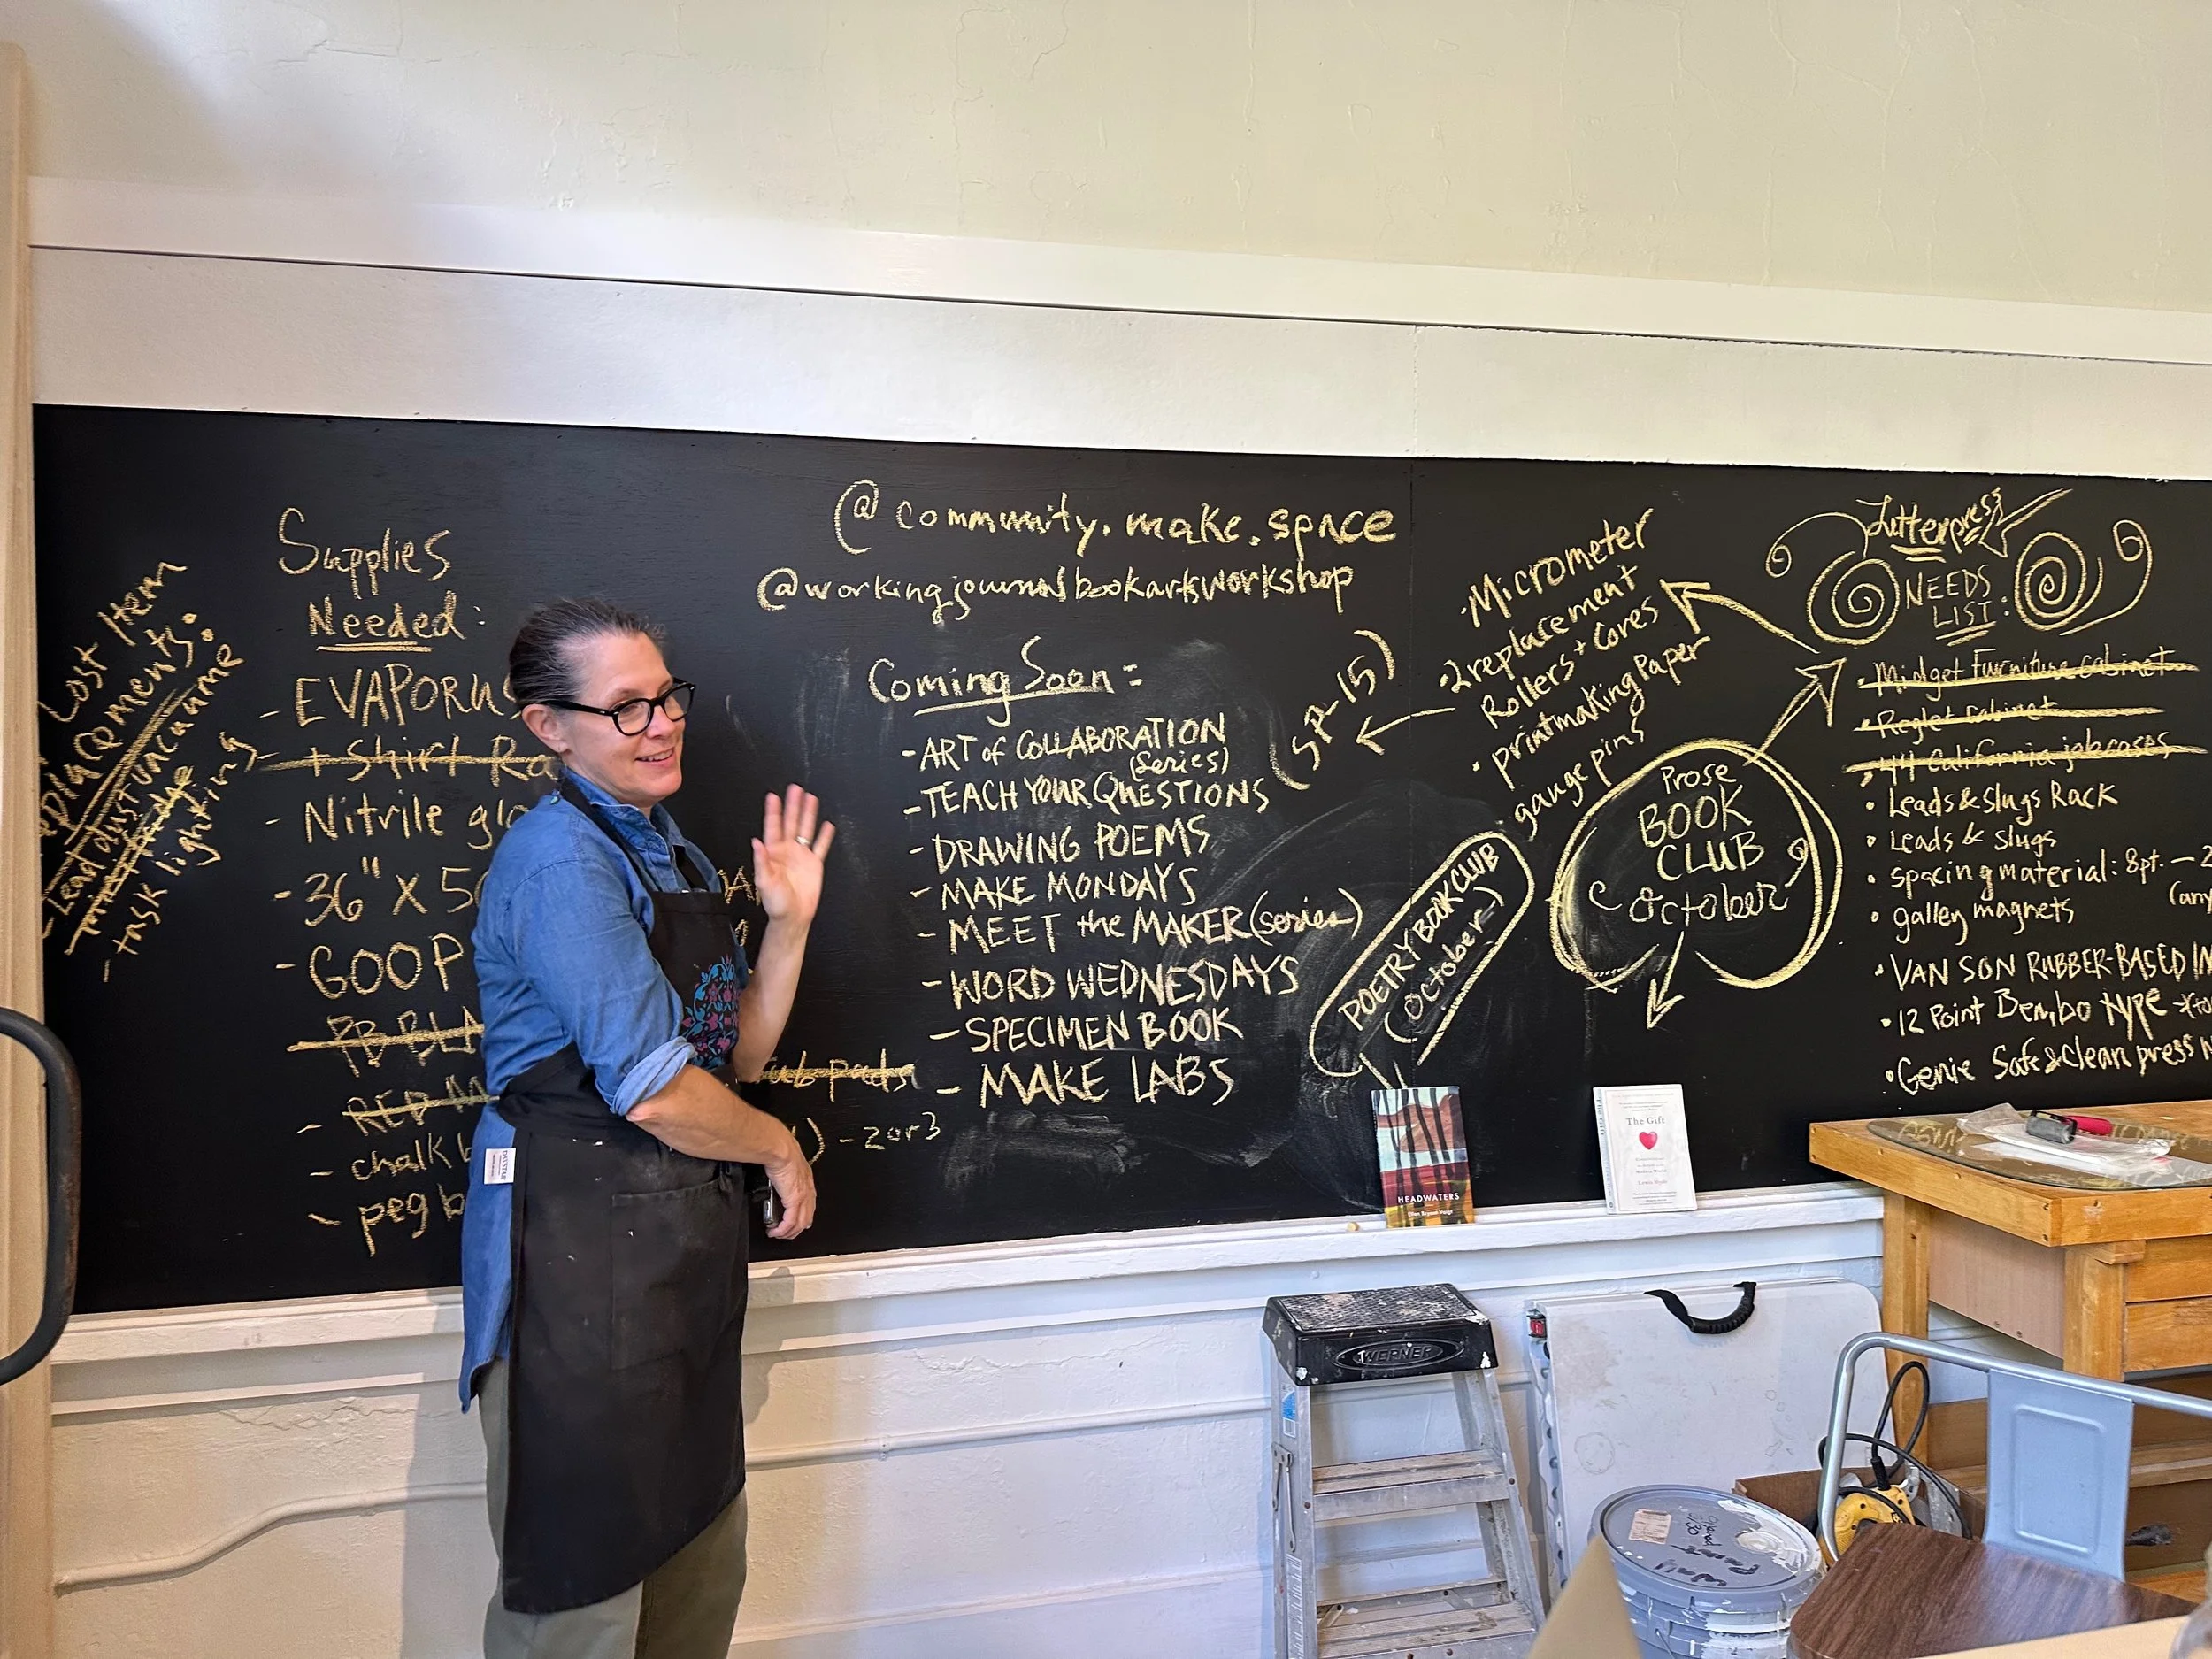 Lost Item
Lead dust vacuume
mini fridge
- task lighting
Supplies
Needed:
- EVAPORUS
- T Shirt Ra
- Nitrile glo
- 36" X 50
- GOOP
PB BLA
- RED M
- chalk b
- peg b
pads
- 2 or 3
@community.make.space
@workingjournalbookartsworkshop
Coming Soon:
- ART of COLLABORATION
(series)
- TEACH YOUR QUESTIONS
- DRAWING POEMS
- MAKE MONDAYS
- MEET the MAKER (series)
- WORD WEDNESDAYS
- SPECIMEN BOOK
- MAKE LABS
(SP-15)
• Micrometer
• 2 replacement
Rollers + Cores
• printmaking Paper
gauge pins
POETRY BOOK CLUB
(October)
Prose
BOOK
CLUB
October
Letterpress
NEEDS
LIST:
• Midget Furniture cabinet
• Reglet cabinet
• 44 California jobcases
• Leads & Slugs Rack
• Leads & slugs
• spacing material: 8pt. - 2
(any
• galley magnets
• VAN SON RUBBER-BASED IN
• 12 Point Bembo type
• Genie Safe & Clean press w
HEADWATERS
Ellen Bryant Voigt
The Gift
Lewis Hyde
WERNER
Wall
Paint